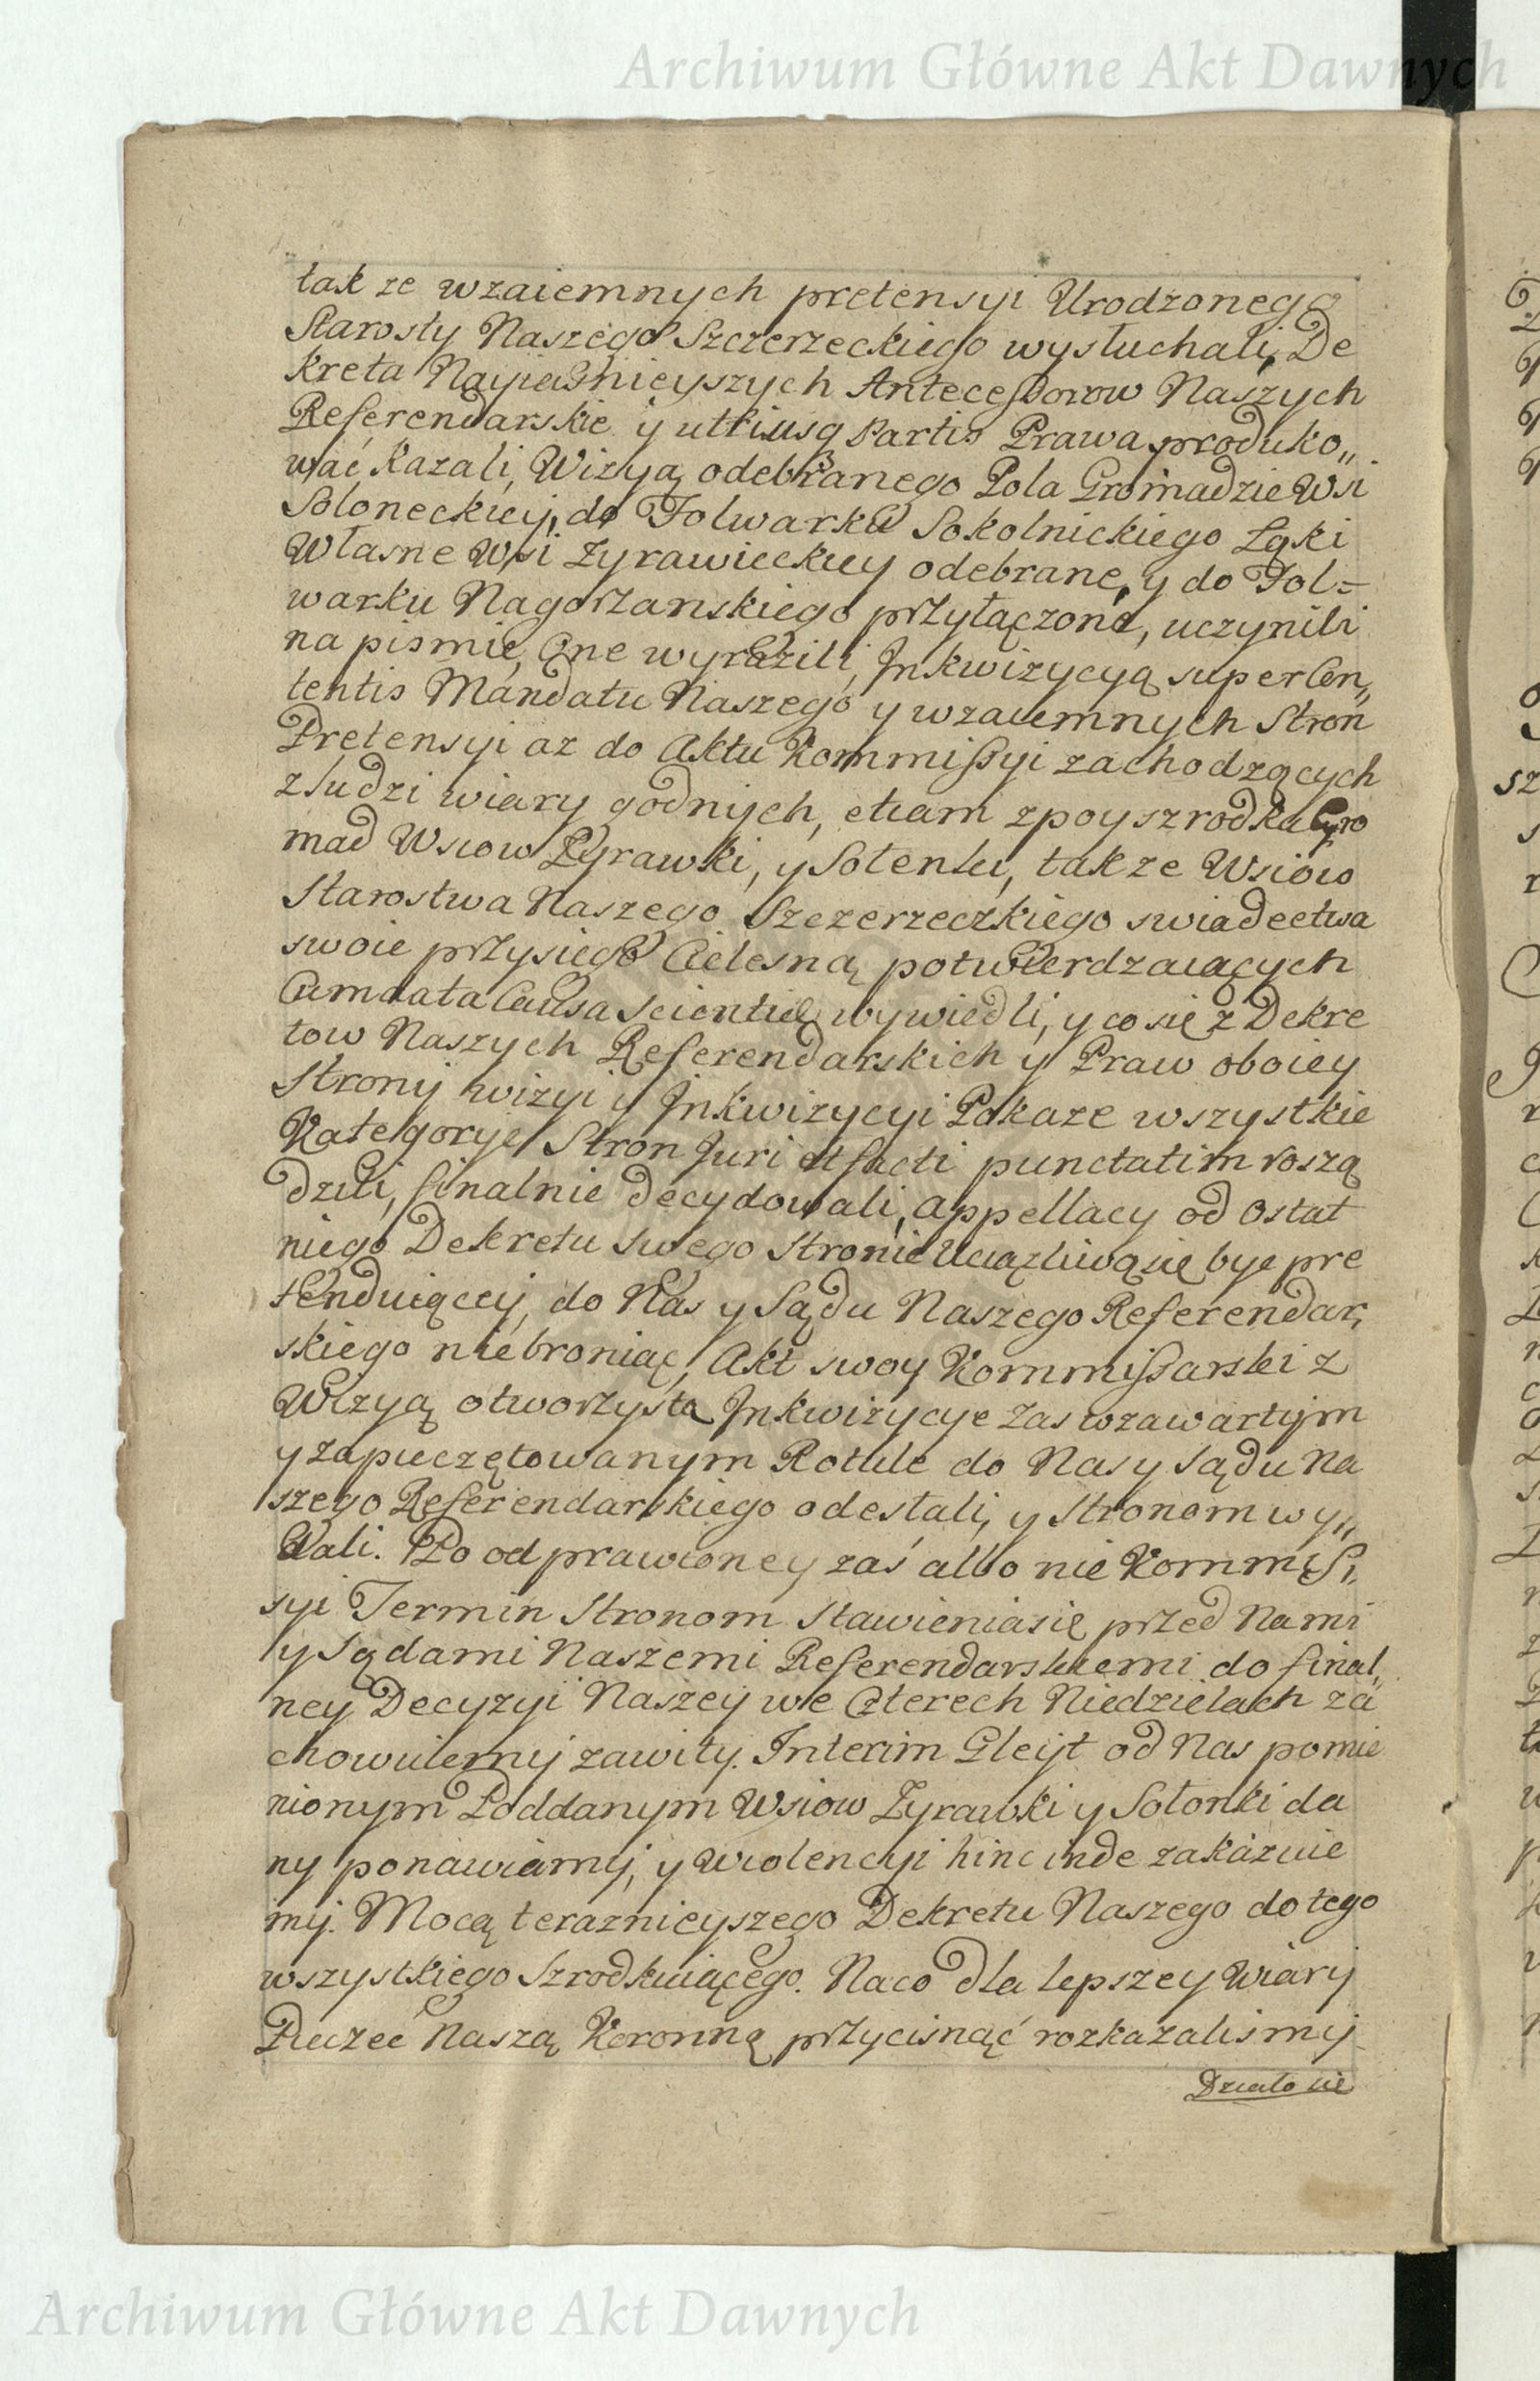 Archiwum Główne Akt Dawnych
tak ze wzaiemnych pretensyi Urodzonego
Starosty Naszego Szczerzeckiego wysłuchali, De
kreta Nayiasnieyszych Antecessorow Naszych
Referendarskie y utriusq Partis Prawa produko„
wać kazali, Wizyą odebranego Pola Gromadzie Wsi
Soloneckiey, do Folwarku Sokolnickiego Łąki
Własne Wsi Zyrawieckiey odebrane, y do Fol=
warku Nagorzanskiego przyłączone, uczynili
na pismie, One wyrazili, Inkwizycyą super Con„
tentis Mandatu Naszego y wzaiemnych Stron
Pretensyi az do Aktu Kommissyi zachodzących
z ludzi wiary godnych, etiam zpoyszrodka Gro
mad Wsiow Zyrawki, y Sołonki, takze Wsiow
Starostwa Naszego Szczerzeczkiego swiadectwa
swoie przysiegą Cielesną potwierdzaiących
Cum data Causa Scientiæ wywiedli, y co się z Dekre
tow Naszych Referendarskich y Praw oboiey
Strony wizyi y Inkwizycyi Pokaze wszystkie
Kategorye Stron Juri et facti punctatim rosza̧
dzili, finalnie decydowali, appellacy od ostat
niego Dekretu swego stronie Uciązliwą się byc pre
tenduiącey, do Nas y Sądu Naszego Referendar,
skiego niebroniąc, Akt swoy Kommissarski z
Wizyą otworzystą Inkwizycye zas w zawartym
y zapieczętowanym Rotule do Nas y Sądu Na
szego Referendarskiego odesłali, y Stronom wy„
dali. Po odprawioney zaś albo nie Kommis,
syi Termin Stronom Stawienia się przed Nami
y Sądami Naszemi Referendarskiemi do final,
ney Decyzyi Naszey we Czterech Niedzielach za
chowuiemy zawity. Interim Gleyt od Nas pomie
nionym Poddanym Wsiow Zyrawki y Sołonki da
ny ponawiamy, y Wiolencyi hinc inde zakazuie
my. Mocą teraznieyszego Dekretu Naszego do tego
wszystkiego Szrodkuiącego. Naco dla lepszey Wiary
Pieczec Naszą Koronną przycisnąć rozkazalismy
Działo się
Archiwum Główne Akt Dawnych